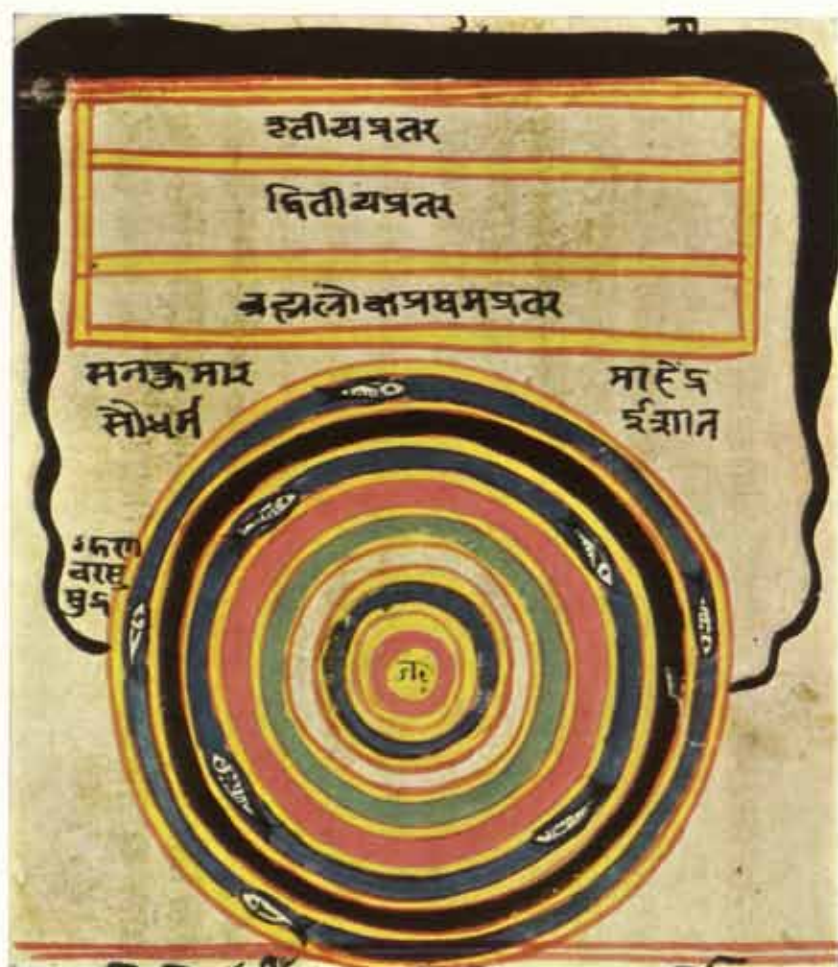 तृतीयप्रतर
द्वितीयप्रतर
ब्रह्मलोकप्रथमप्रतर
सनत्कुमार
सौधर्म
माहेंद्र
ईशान